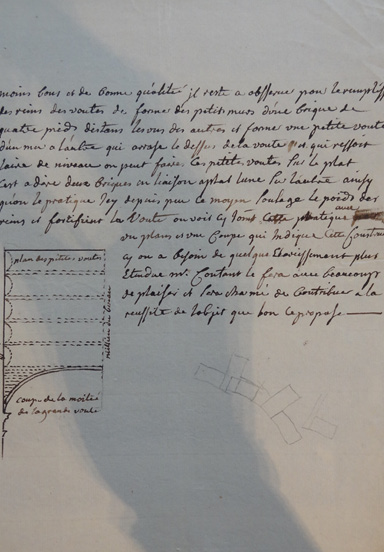 moins bons et de bonne qualité jl reste a observer pour le rempliss
des reins des voutes de former des petits murs d'une brique de
quatre pieds distans les uns des autres et former une petite voute
d'un mur a l'autre qui arrase le dessus de la voute et qui ressort
l'aire de niveau on peut faire les petites voutes sur le plat
c'est a dire deux briques en liaison a plat l'une sur l'autre ainsy
qu'on le pratique Jcy depuis peu ce moyen soulage le poids des
reins et fortifient la voute on voit cy joint cette pratique avec
un plan et une coupe qui indique cette construc
cy on a besoin de quelque Eclaircissement plus
Etendue mr. Coutant le fera avec beaucoup
de plaisir et sera charmé de contribuer a la
reussite de l'objet que l'on ce propose
plan des petites voutes
millieu du berceau
coupe de la moitié
de la grande voute